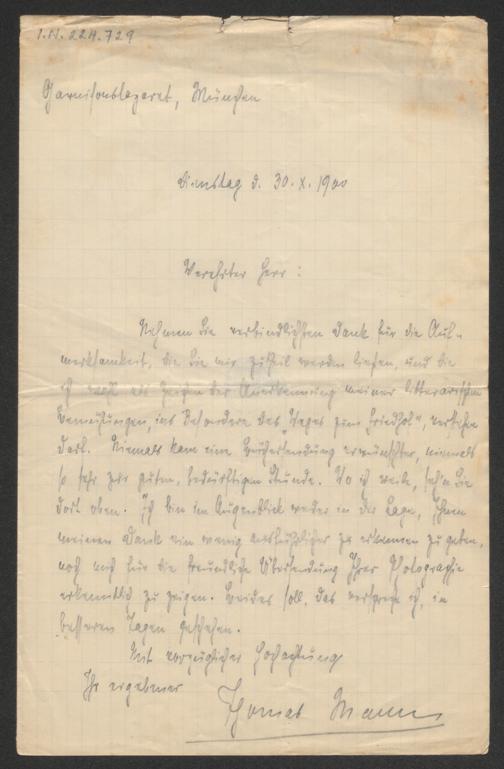 I.N. 224.729
Garnisonslazaret, München
Dienstag d. 30. X. 1900
Verehrter Herr:
Nehmen Sie verbindlichsten Dank für die Auf-
merksamkeit, die Sie mir zutheil werden ließen, und die
ich wohl als Zeichen der Anerkennung meiner litterarischen
Bemühungen, ins Besondere des „Weges zum Friedhof“, verstehen
darf. Niemals kam eine Büchersendung erwünschter, niemals
so sehr zur guten, bedürftigen Stunde. Wo ich weile, seh'n Sie
dort oben. Ich bin im Augenblick weder in der Lage, Ihnen
meinen Dank ein wenig ausführlicher zu erkennen zu geben,
noch mich für die freundliche Übersendung Ihrer Photographie
erkenntlich zu zeigen. Beides soll, das verspreche ich, in
besseren Tagen geschehen.
Mit vorzüglicher Hochachtung
Ihr ergebener
Thomas Mann